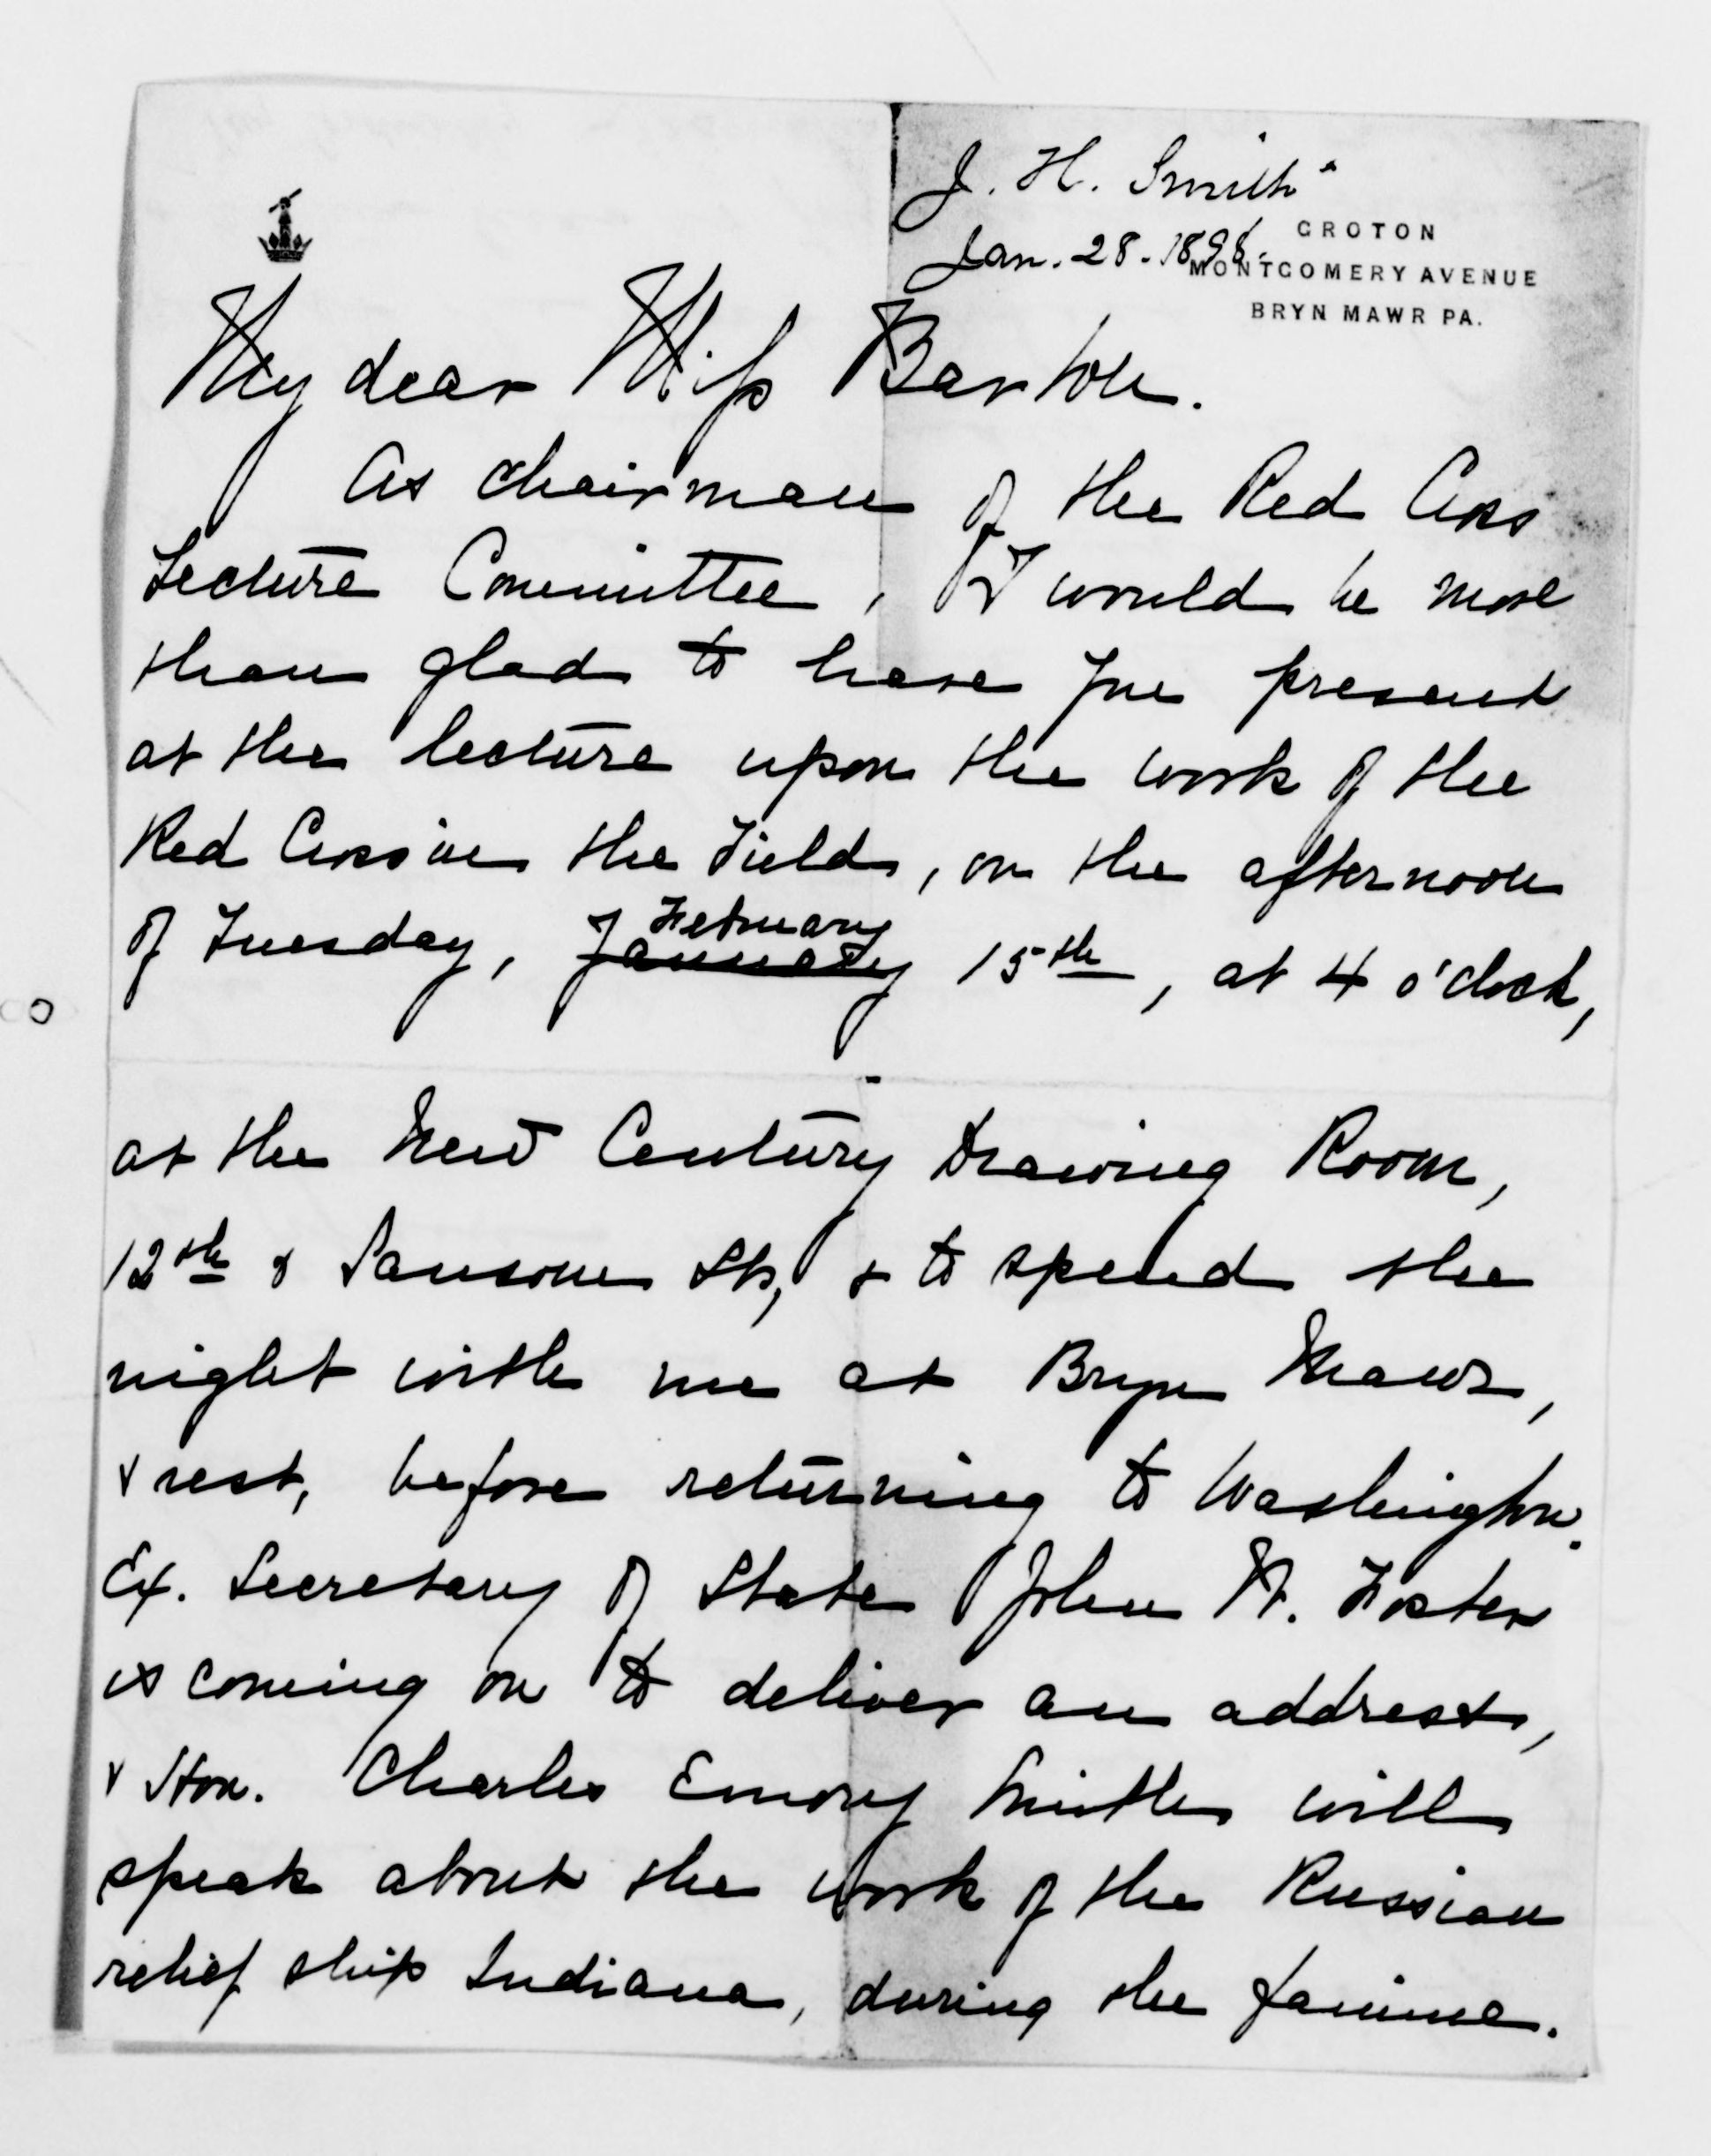 J. H. Smith
Jan. 28. 1898.
GROTON
MONTGOMERY AVENUE
BRYN MAWR PA.
My dear Miss Barton.
As chairman of the Red Cross
Lecture Committee, I would be more
than glad to have you present
at the lecture upon the work of the
Red Cross in the Field, on the afternoon
February
of Tuesday, January 15th, at 4 o'clock,
at the New Century Drawing Room,
12th & Sansom Sts, & to spend the
night with me at Bryn Mawr,
& rest, before returning to Washington.
Ex. Secretary of State John W. Foster
is coming on to deliver an address,
& Hon. Charles Emory Smith will
speak about the work of the Russian
relief ship Indiana, during the famine.